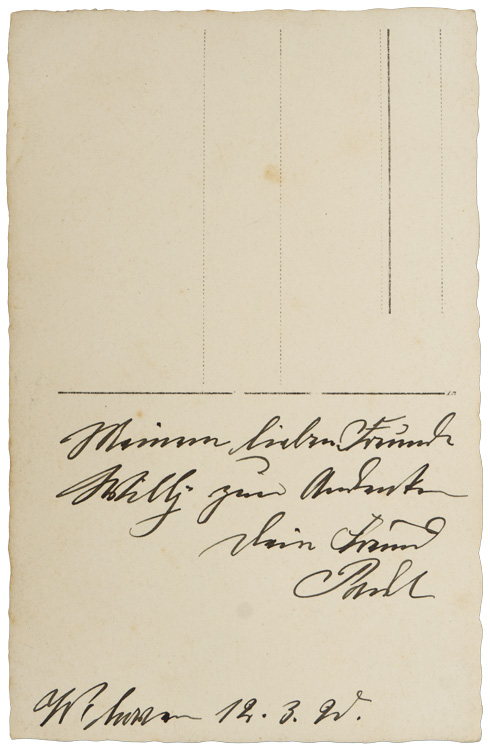 Meinem lieben Freunde
Willy zum Andenken
Dein Freund
Paul
W.haven 12. 3.